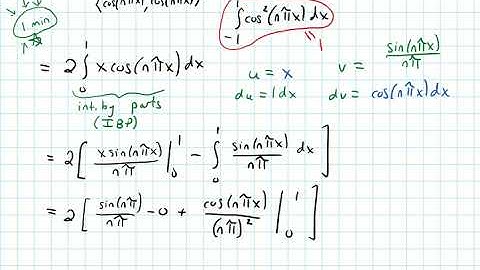 ⟨cos(nπx), cos(nπx)⟩
1 min
∫₋₁¹ cos²(nπx) dx
= 1
= 2∫₀¹ x cos(nπx) dx
int. by parts
(IBP)
u = x v = sin(nπx)/nπ
du = 1dx dv = cos(nπx)dx
= 2[ x sin(nπx)/nπ |₀¹ − ∫₀¹ sin(nπx)/nπ dx ]
= 2[ sin(nπ)/nπ − 0 + cos(nπx)/(nπ)² |₀¹ ]